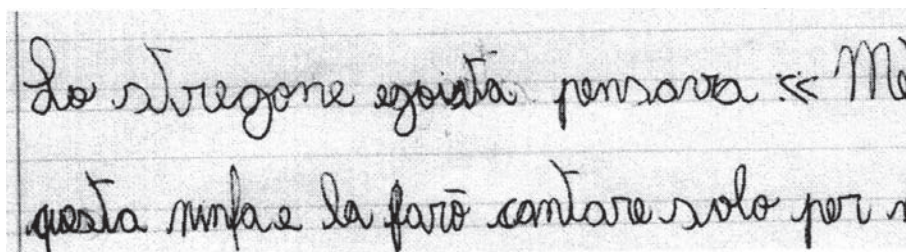 Lo stregone egoista pensava «
questa ninfa e la farò cantare solo per